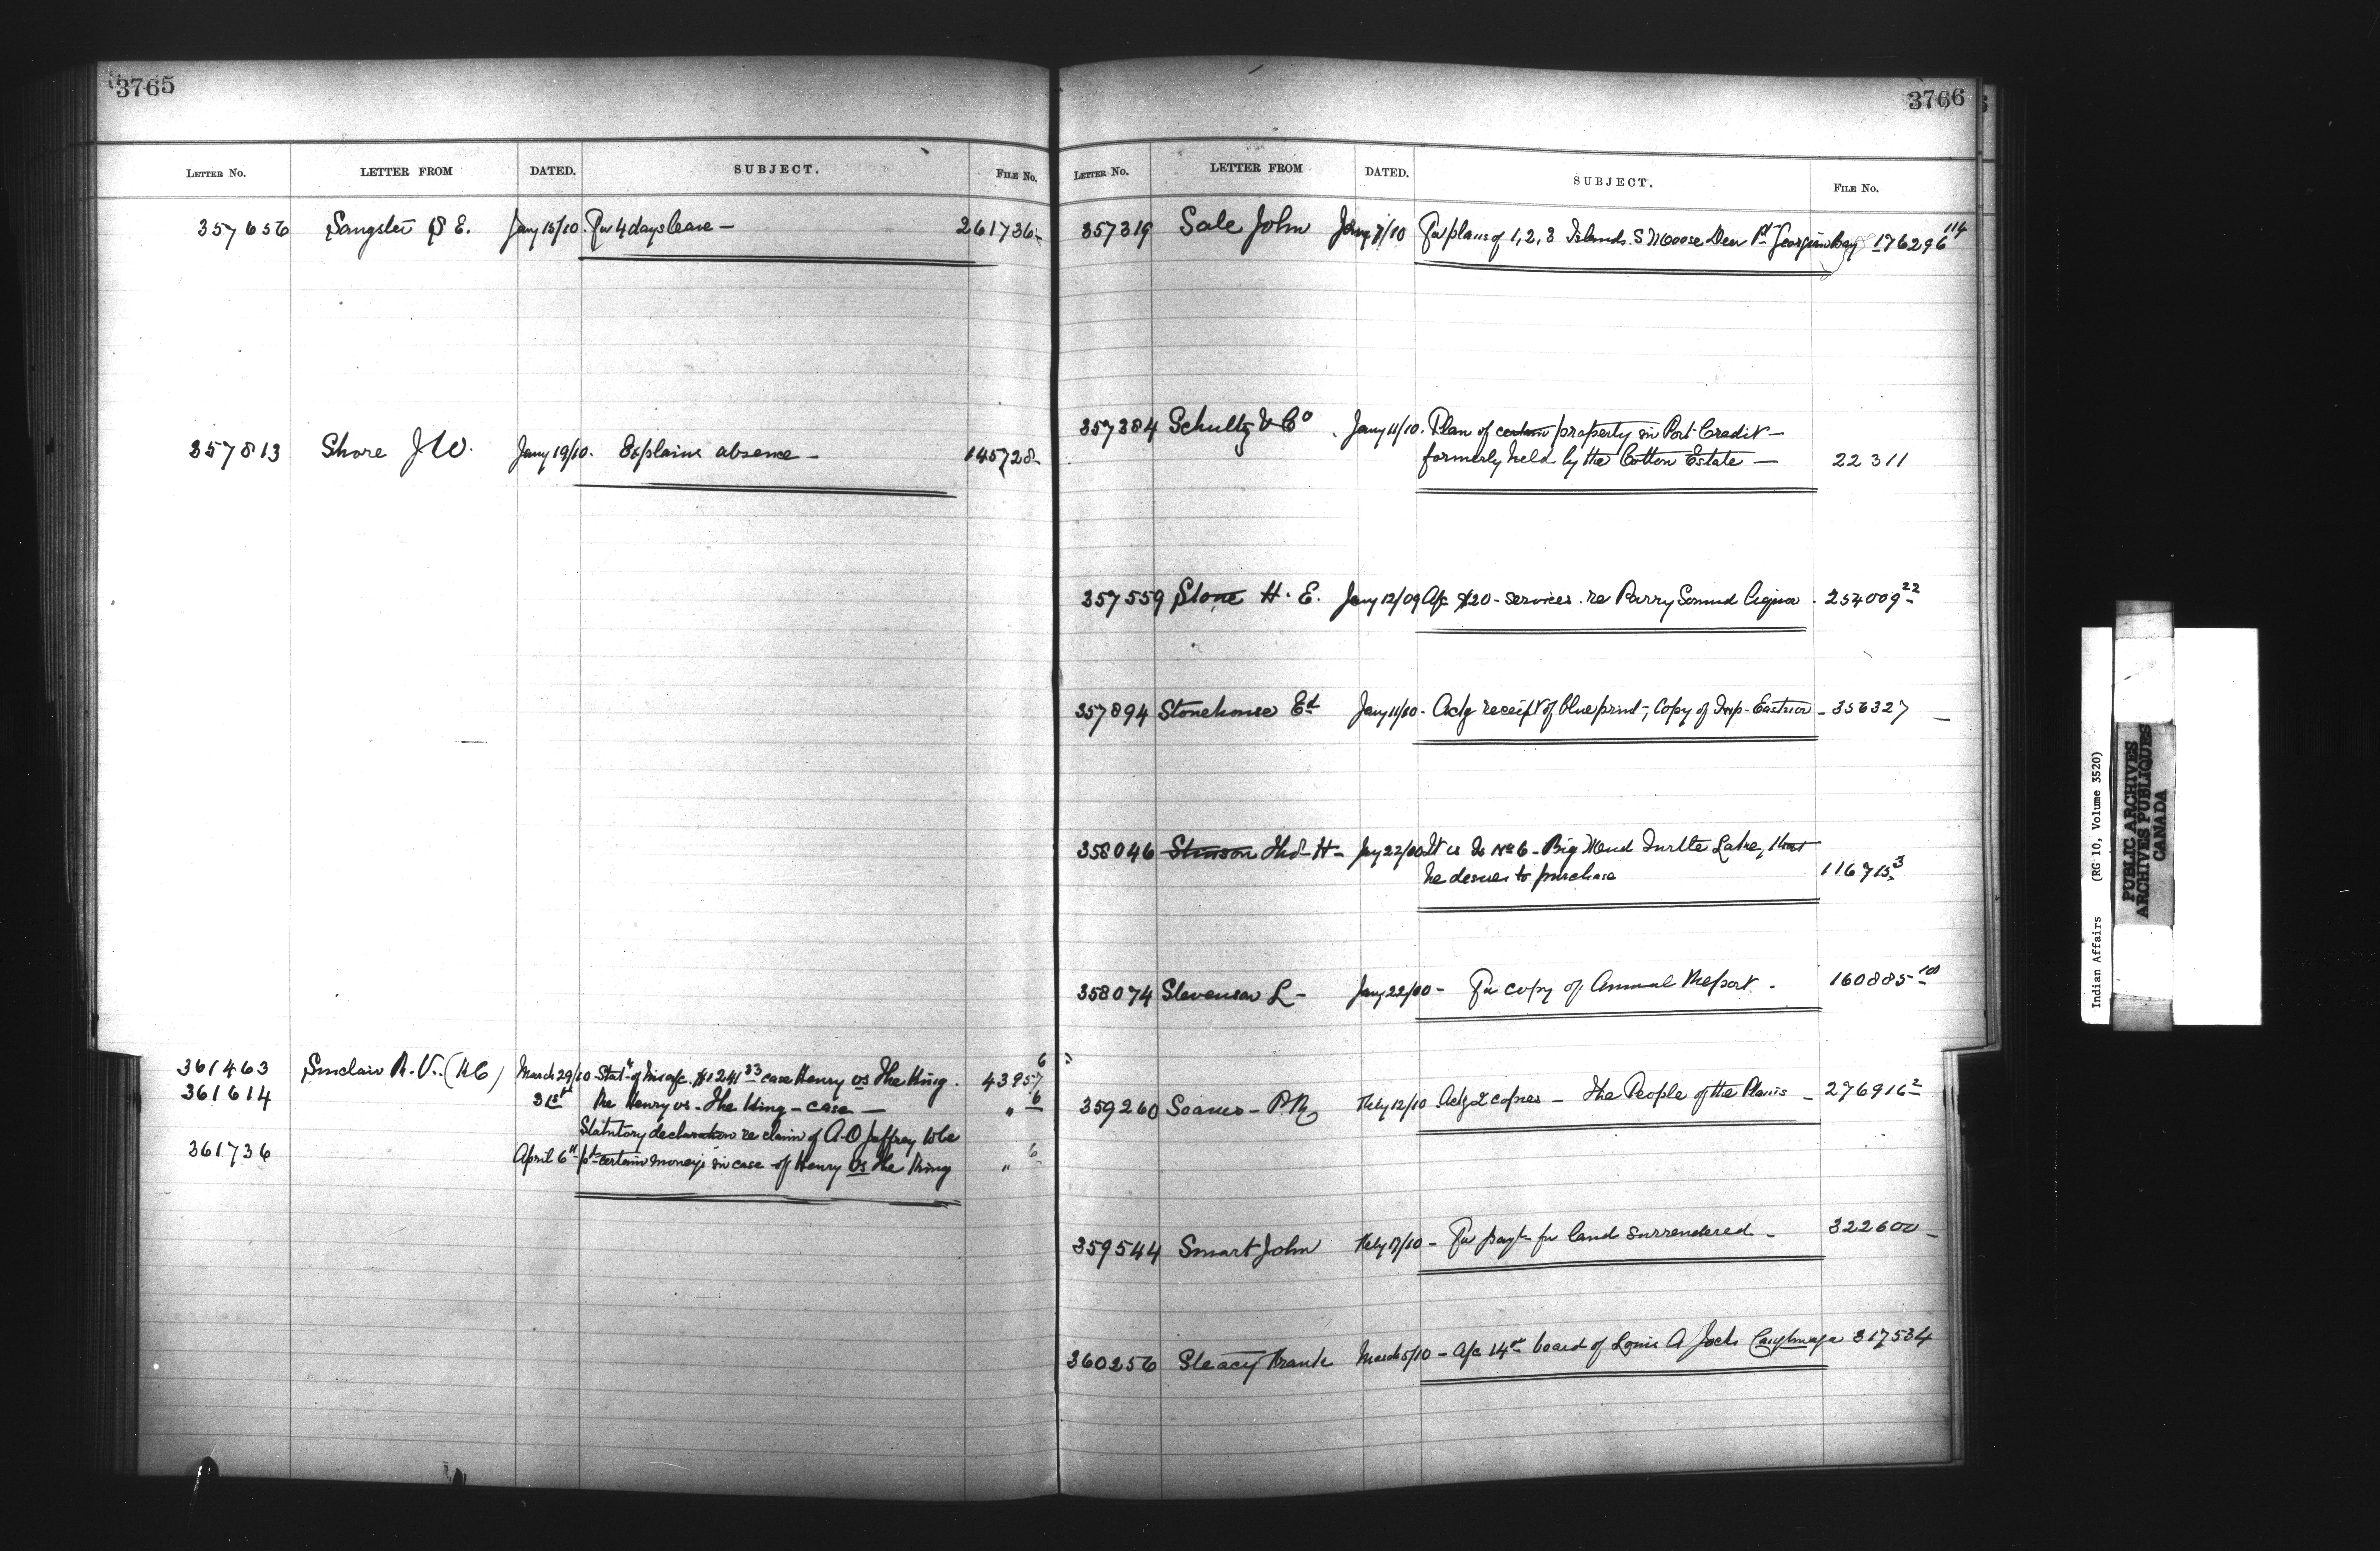 3765
LETTER No. LETTER FROM DATED. SUBJECT. FILE No.
357656 Sangster E. Jany 15/10. For 4 days leave — 261736-
357813 Shore J W. Jany 19/10. Explains absence — 145728-
361463 Sinclair R. V. (KC) March 29/10 Stat. of his a/c. $1241 33 case Henry vs The King. 43957 6
361614 31st Re Henry vs. The King — case — " 6
Statutory declaration re claim of A. O Jeffrey to be
361736 April 6th pd certain moneys in case of Henry vs The King " 6
3766
LETTER No. LETTER FROM DATED. SUBJECT. FILE No.
357319 Sale John Jany 7/10 For plans of 1, 2, 3 Islands. S Moose Deer Pt Georgian Bay 176296 114
357384 Schultz & Co Jany 11/10. Plan of certain property in Port Credit —
formerly held by the Cotton Estate — 22311
357559 Stone H. E. Jany 12/09 A/c $20 - services. re Parry Sound Liquor. 254009 22
357894 Stonehouse Ed Jany 11/10 - Ackg receipt of blue print, Copy of Imp. Eastnor - 356327 —
358046 Stinson Thos H - Jany 22/10 It is Is No 6 - Big Mud Turtle Lake, that
he desires to purchase 116715 3
358074 Stevenson L - Jany 22/10 - For copy of Annual Report. 160885 - 108
359260 Soanes - P.R. Feby 12/10 Ackg 2 copies — The People of the Plains - 276916 2
359544 Smart John Feby 17/10 - For payt for land surrendered - 322600 -
360256 Steacy Frank March 5/10 - A/c board of Louis A Jocks Caughnaga 317534
Indian Affairs (RG 10, Volume 3520)
PUBLIC ARCHIVES
ARCHIVES PUBLIQUES
CANADA